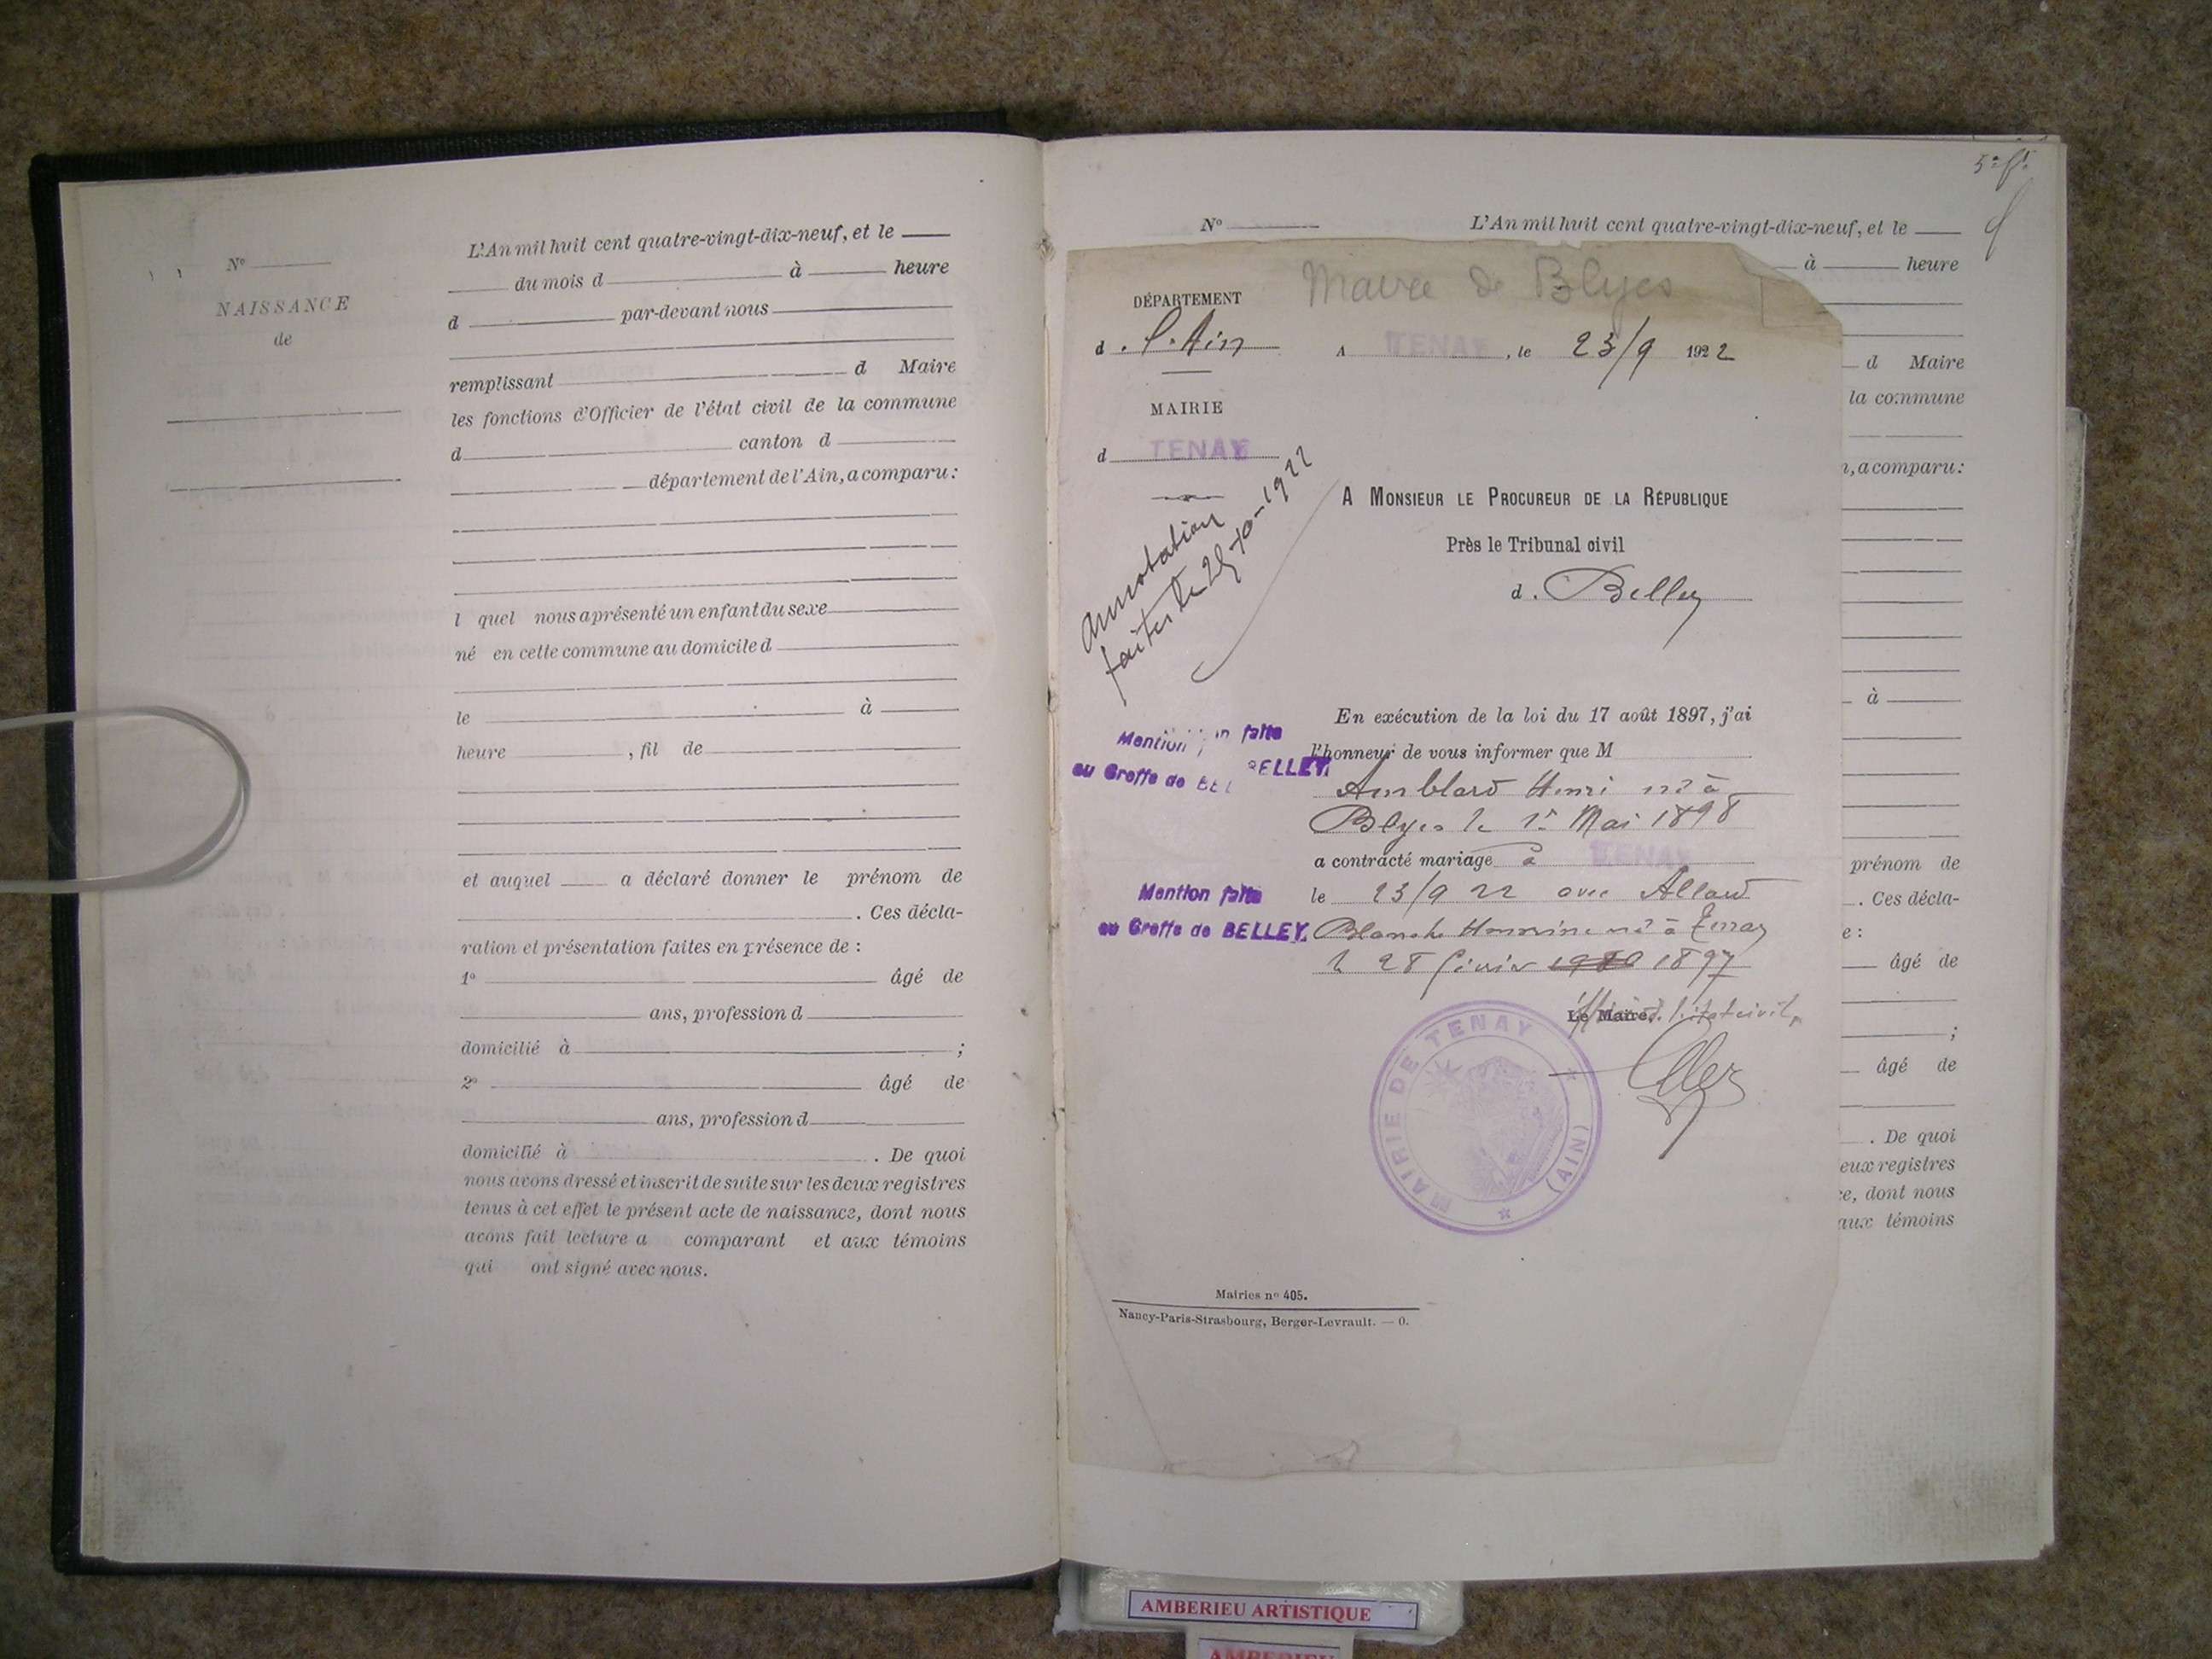 L'An mil huit cent quatre-vingt-dix-neuf, et le
N°
du mois d à heure
NAISSANCE
de
d par-devant nous
remplissant d Maire
les fonctions d'Officier de l'état civil de la commune
d canton d
département de l'Ain, a comparu :
l quel nous a présenté un enfant du sexe
né en cette commune au domicile d
le à
heure , fil de
et auquel a déclaré donner le prénom de
. Ces décla-
ration et présentation faites en présence de :
1° âgé de
ans, profession d
domicilié à ;
2° âgé de
ans, profession d
domicilié à . De quoi
nous avons dressé et inscrit de suite sur les deux registres
tenus à cet effet le présent acte de naissance, dont nous
avons fait lecture a comparant et aux témoins
qui ont signé avec nous.
N° L'An mil huit cent quatre-vingt-dix-neuf, et le
à heure
d Maire
la commune
n, a comparu :
à
prénom de
. Ces décla-
e :
âgé de
;
âgé de
. De quoi
eux registres
ce, dont nous
aux témoins
Mairie de Blyes
DÉPARTEMENT
d. l'Ain
A TENAY, le 23/9 1922
MAIRIE
d TENAY
annotation
faite le 25-10-1922
A MONSIEUR LE PROCUREUR DE LA RÉPUBLIQUE
Près le Tribunal civil
d. Belley
En exécution de la loi du 17 août 1897, j'ai
l'honneur de vous informer que M
Mention faite
au Greffe de BELLEY.
Amblard Henri né à
Blyes le 1er Mai 1898
a contracté mariage à TENAY
le 23/9 22 avec Allard
Mention faite
au Greffe de BELLEY.
Blanche né à Tenay
le 28 février 1897
Le Maire, l'état civil,
MAIRIE DE TENAY
(AIN)
Mairies n° 405.
Nancy-Paris-Strasbourg, Berger-Levrault. — 0.
AMBERIEU ARTISTIQUE
AMBERIEU